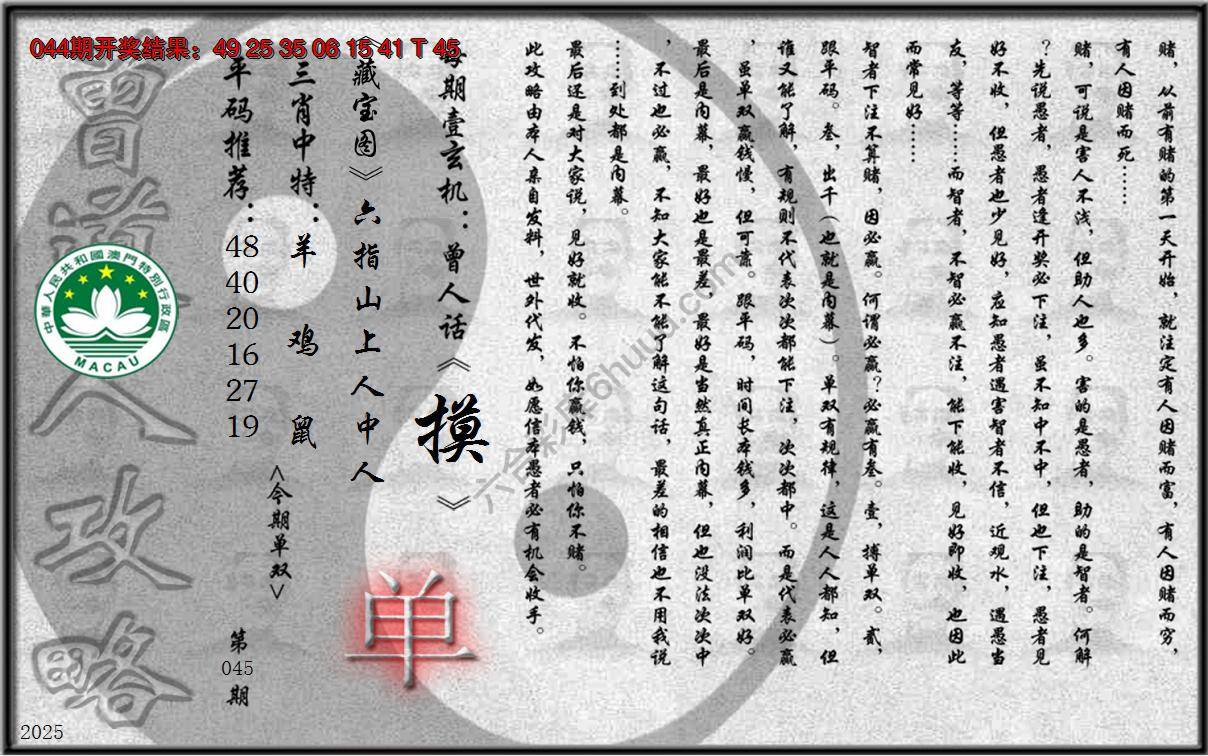 044期开奖结果：49 25 35 06 15 41 T 45
赌，从前有赌的第一天开始，就注定有人因赌而富，有人因赌而穷，
有人因赌而死……
赌，可说是害人不浅，但助人也多。害的是愚者，助的是智者。何解
？先说愚者，愚者逢开奖必下注，虽不知中不中，但也下注，愚者见
好不收，但愚者也少见好，应知愚者遇害智者不信，近观水，遇愚当
友，等等……而智者，不智必赢不注，能下能收，见好即收，也因此
而常见好……
智者下注不算赌，因必赢。何谓必赢？必赢有叁。壹，搏单双。贰，
跟平码。叁，出千（也就是内幕）。单双有规律，这是人人都知，但
谁又能了解，有规则不代表次次都能下注，次次都中。而是代表必赢
，虽单双赢钱慢，但可靠。跟平码，时间长本钱多，利润比单双好。
最后是内幕，最好也是最差，最好是当然真正内幕，但也没法次次中
，不过也必赢，不知大家能不能了解这句话，最差的相信也不用我说
……到处都是内幕。
最后还是对大家说，见好就收。不怕你赢钱，只怕你不赌。
此攻略由本人亲自发料，世外代发，如愿信本愚者必有机会收手。
每期壹玄机：曾人话《摸》
《藏宝图》六指山上人中人
三肖中特：羊鸡鼠
<今期单双>
单
平码推荐：
48
40
20
16
27
19
第
045
期
曾道人攻略
中華人民共和國澳門特別行政區
MACAU
六合彩库6huuu.com
2025